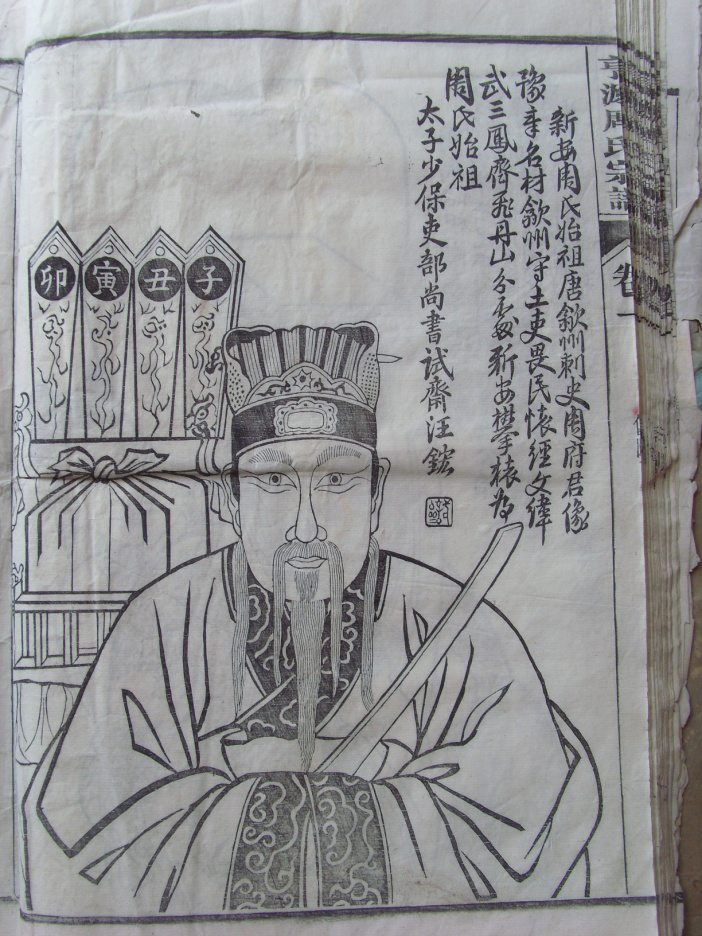 亨源周氏宗譜
卷一
新安周氏始祖唐歙州刺史周府君像
豫章名材歙州守土吏畏民懷經文緯
武三鳳齊飛丹山分彩新安攀轅為
周氏始祖
太子少保吏部尚書試齋汪鋐
子
丑
寅
卯